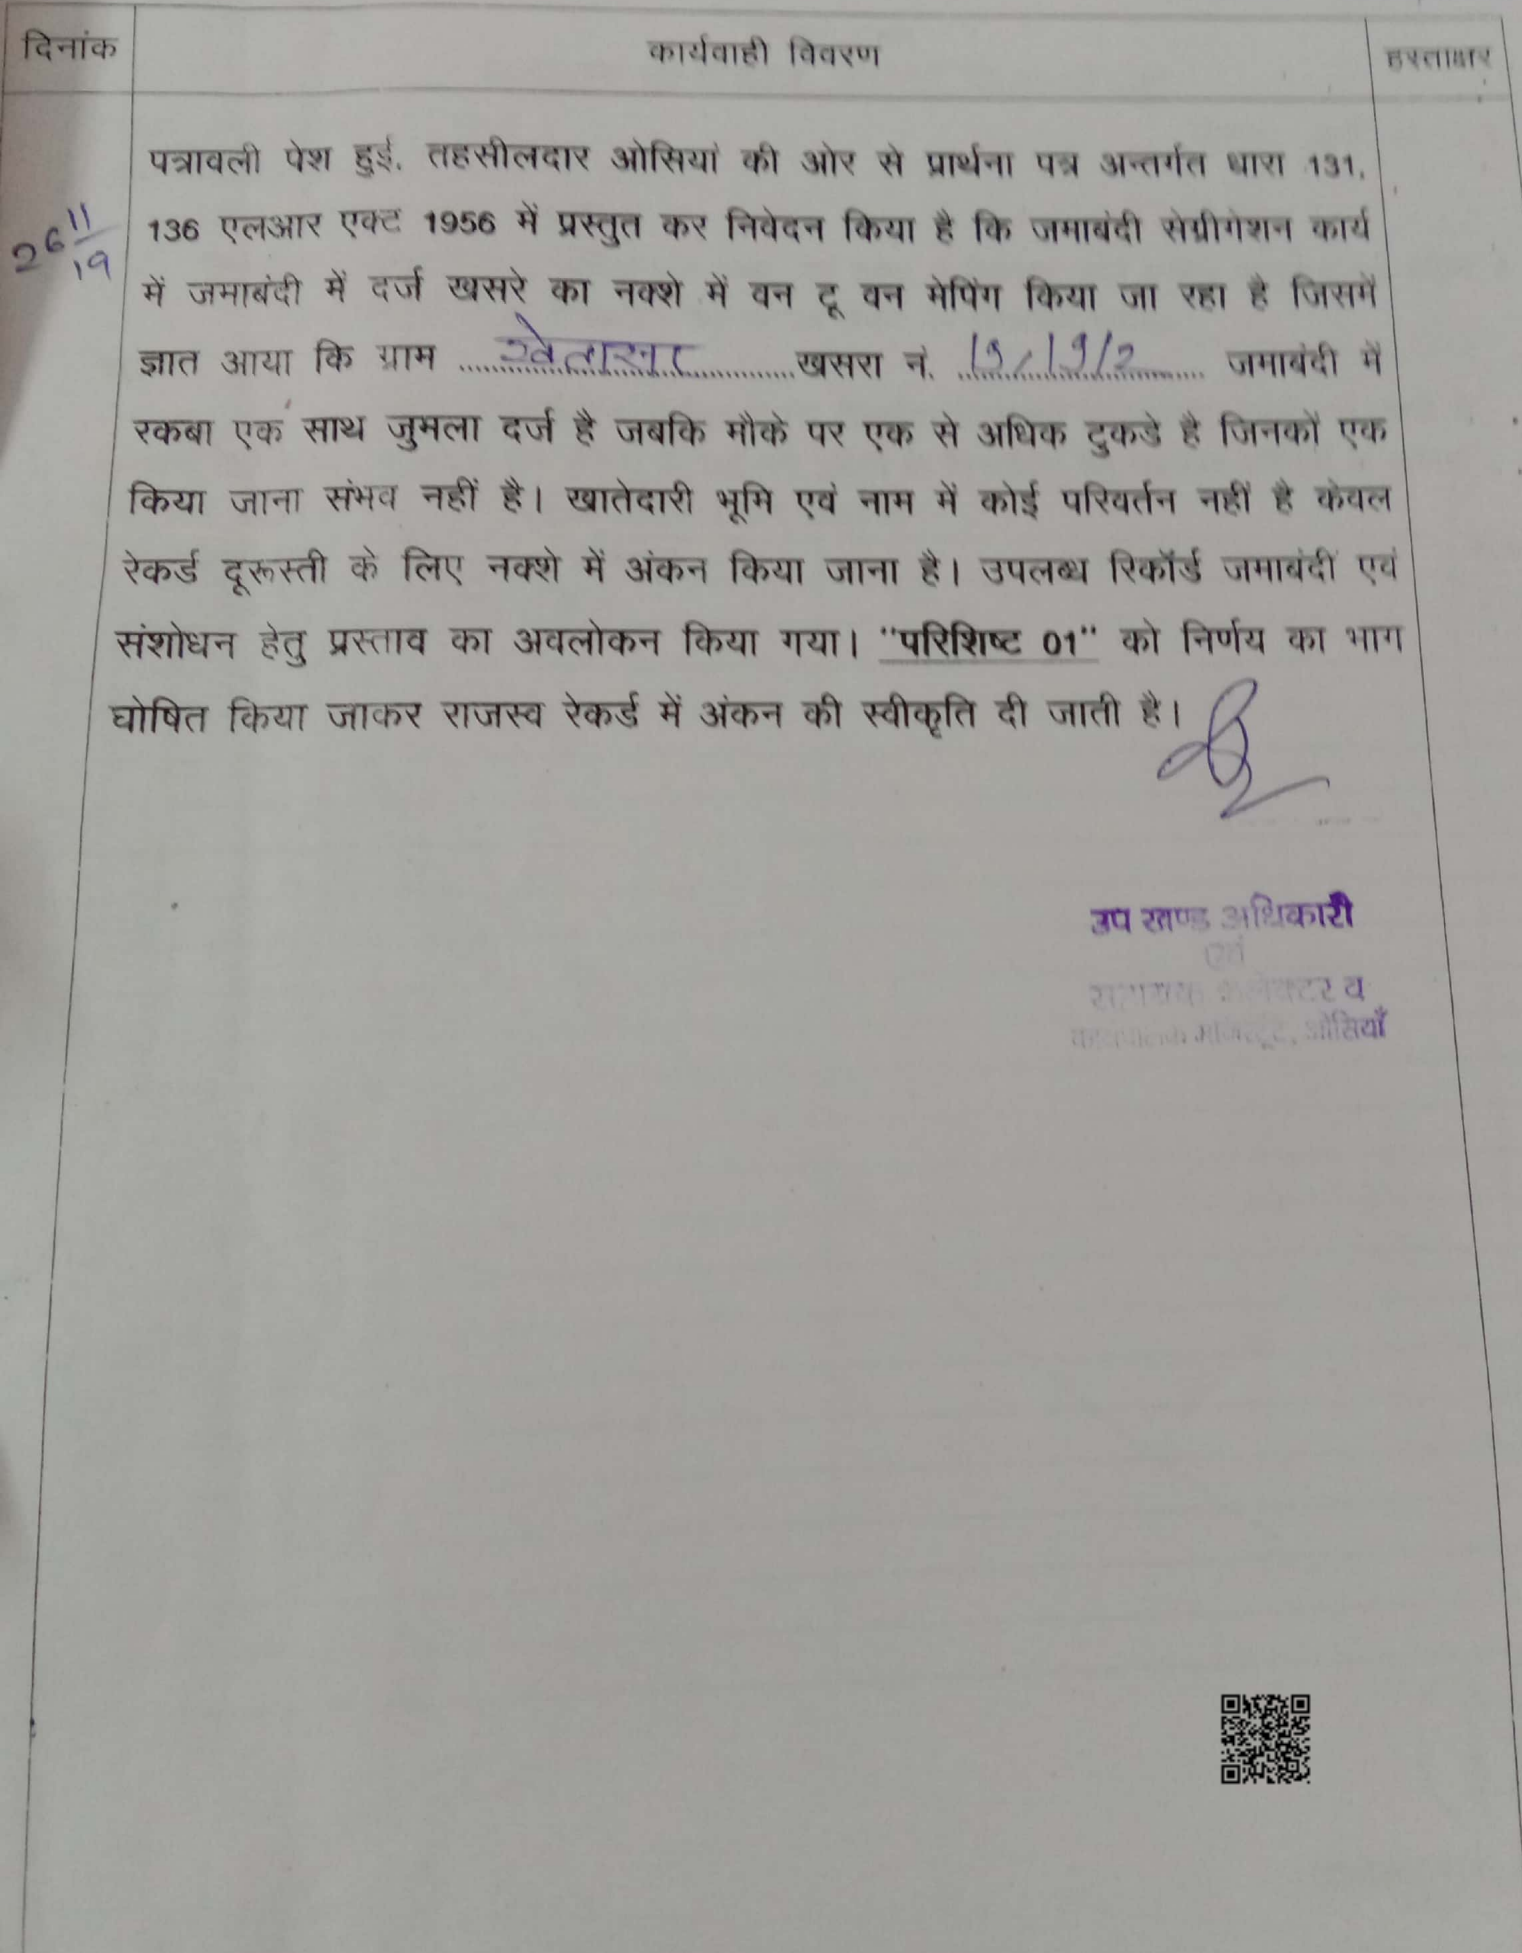 दिनांक कार्यवाही विवरण हस्ताक्षर
पत्रावली पेश हुई. तहसीलदार ओसियां की ओर से प्रार्थना पत्र अन्तर्गत धारा 131,
26 11/19
136 एलआर एक्ट 1956 में प्रस्तुत कर निवेदन किया है कि जमाबंदी सेग्रीगेशन कार्य
में जमाबंदी में दर्ज खसरे का नक्शे में वन टू वन मेपिंग किया जा रहा है जिसमें
ज्ञात आया कि ग्राम खेतासर खसरा नं. 19/19/2 जमाबंदी में
रकबा एक साथ जुमला दर्ज है जबकि मौके पर एक से अधिक टुकडे है जिनकों एक
किया जाना संभव नहीं है। खातेदारी भूमि एवं नाम में कोई परिवर्तन नहीं है केवल
रेकर्ड दूरूस्ती के लिए नक्शे में अंकन किया जाना है। उपलब्ध रिकॉर्ड जमाबंदी एवं
संशोधन हेतु प्रस्ताव का अवलोकन किया गया। "परिशिष्ट 01" को निर्णय का भाग
घोषित किया जाकर राजस्व रेकर्ड में अंकन की स्वीकृति दी जाती है।
उप खण्ड अधिकारी
एवं
सहायक कलेक्टर व
मजिस्ट्रेट, ओसियाँ